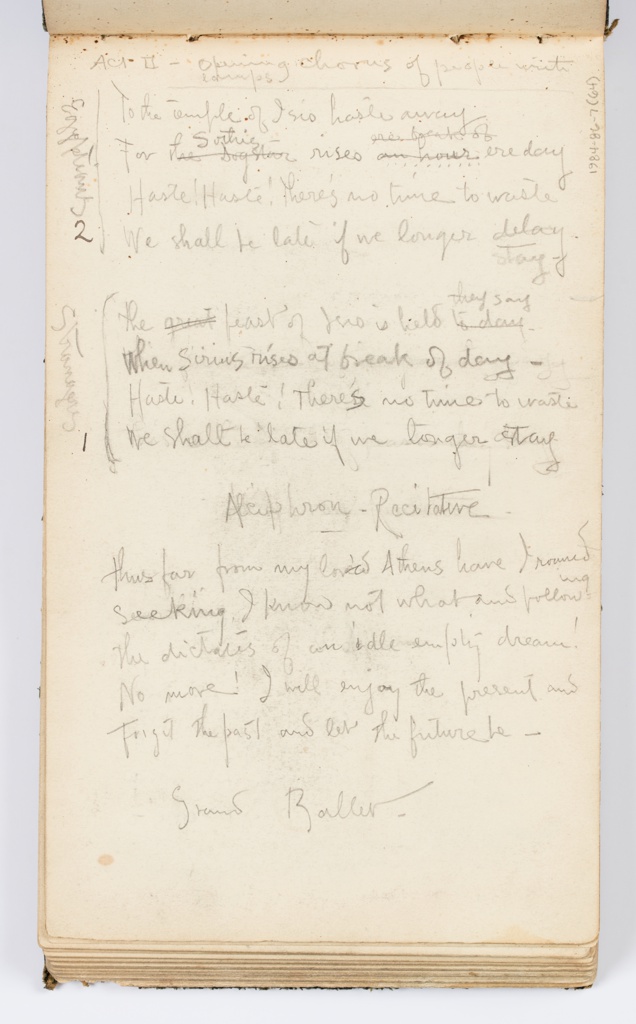 Act II - opening chorus of people with
lamps
1984-86-7(64)
Egyptians
To the temple of Isis haste away
Sothis ere break of
For the Dog Star rises an hour ere day
Haste! Haste! There's no time to waste
2
We shall be late if we longer delay
stay -
Strangers
they say
The great feast of Isis is held to day -
When Sirius rises at break of day -
Haste! Haste! There's no time to waste
1
We shall be late if we longer stay
Alciphron - Recitative -
Thus far from my loved Athens have I roamed
Seeking I know not what and following
The dictates of an idle empty dream!
No more! I will enjoy the present and
Forget the past and let the future be -
Grand Ballet -